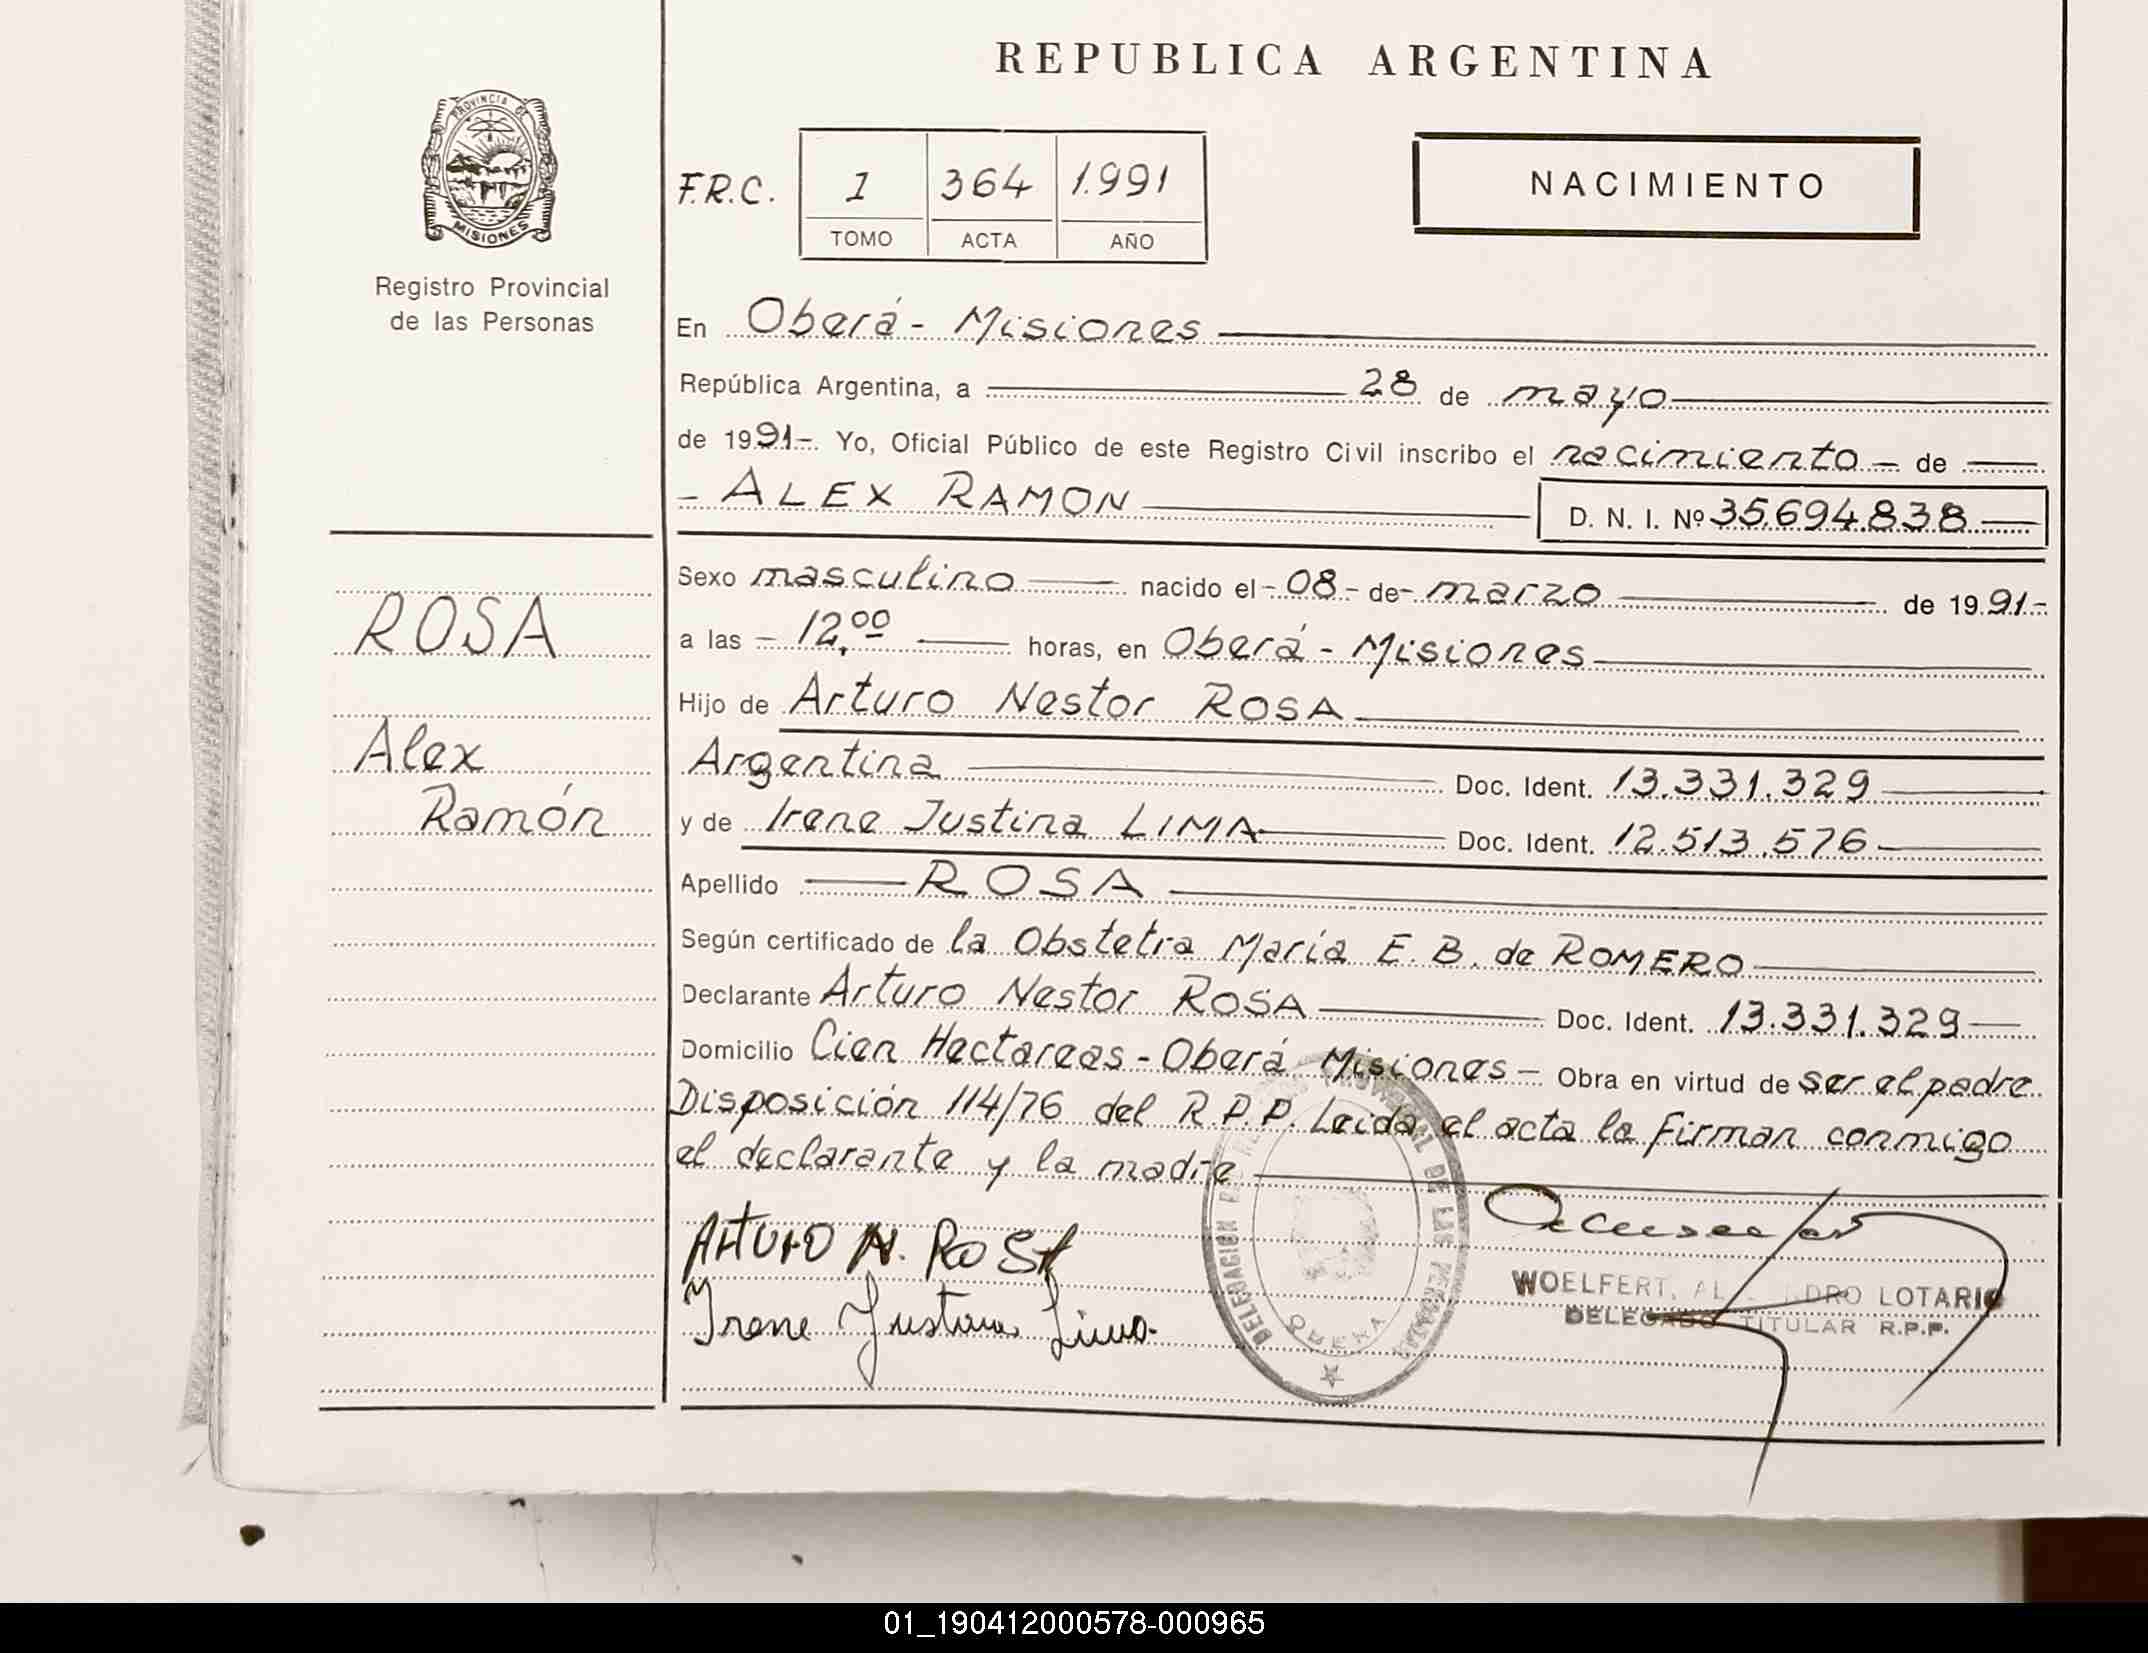 REPUBLICA ARGENTINA
PROVINCIA DE
MISIONES
Registro Provincial
de las Personas
F.R.C. 1 364 1.991
TOMO ACTA AÑO
NACIMIENTO
En Oberá - Misiones
República Argentina, a 28 de mayo
de 1991-. Yo, Oficial Público de este Registro Civil inscribo el nacimiento - de
- ALEX RAMON D. N. I. Nº 35.694.838
ROSA
Alex
Ramón
Sexo masculino nacido el - 08 - de - marzo de 1991-
a las - 12,00 horas, en Oberá - Misiones
Hijo de Arturo Nestor ROSA
Argentina Doc. Ident. 13.331.329
y de Irene Justina LIMA Doc. Ident. 12.513.576
Apellido ROSA
Según certificado de la Obstetra María E. B. de ROMERO
Declarante Arturo Nestor ROSA Doc. Ident. 13.331.329
Domicilio Cien Hectareas - Oberá Misiones - Obra en virtud de ser el padre
Disposición 114/76 del R.P.P. Leida el acta la firman conmigo
el declarante y la madre
ARTURO N. ROSA
Irene Justina Lima.
DELEGACION DEL REGISTRO PROVINCIAL DE LAS PERSONAS
OBERA
WOELFERT, AL NDRO LOTARIO
DELEGADO TITULAR R.P.P.
01_190412000578-000965